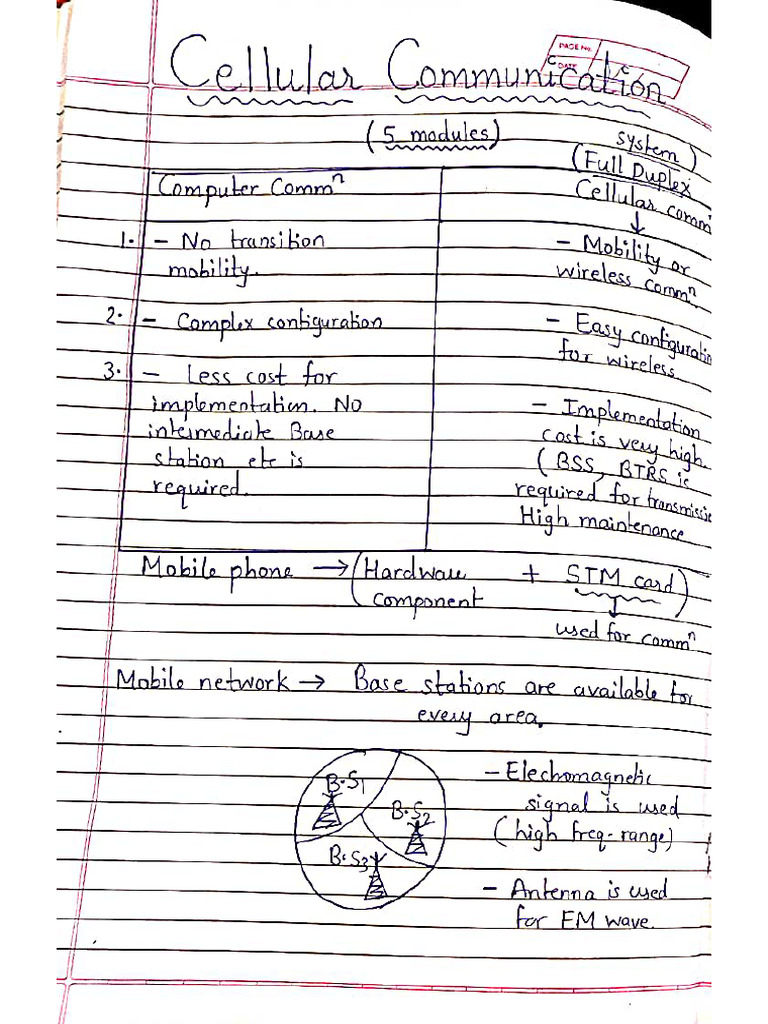 PAGE No.
DATE
Cellular Communication
(5 modules)
system)
(Full Duplex
Computer Commⁿ
Cellular commⁿ
1. - No transition
mobility.
- Mobility or
wireless commⁿ
2. - Complex configuration
- Easy configuratin
for wireless
3. - Less cost for
implementation. No
intermediate Base
station etc is
required.
- Implementation
cost is very high.
(BSS, BTRS is
required for transmissi
High maintenance
Mobile phone → (Hardware + STM card)
component
used for commⁿ
Mobile network → Base stations are available for
every area.
B.S1
B.S2
B.S3
- Elechomagnetic
signal is used
(high freq-range)
- Antenna is used
for EM wave.